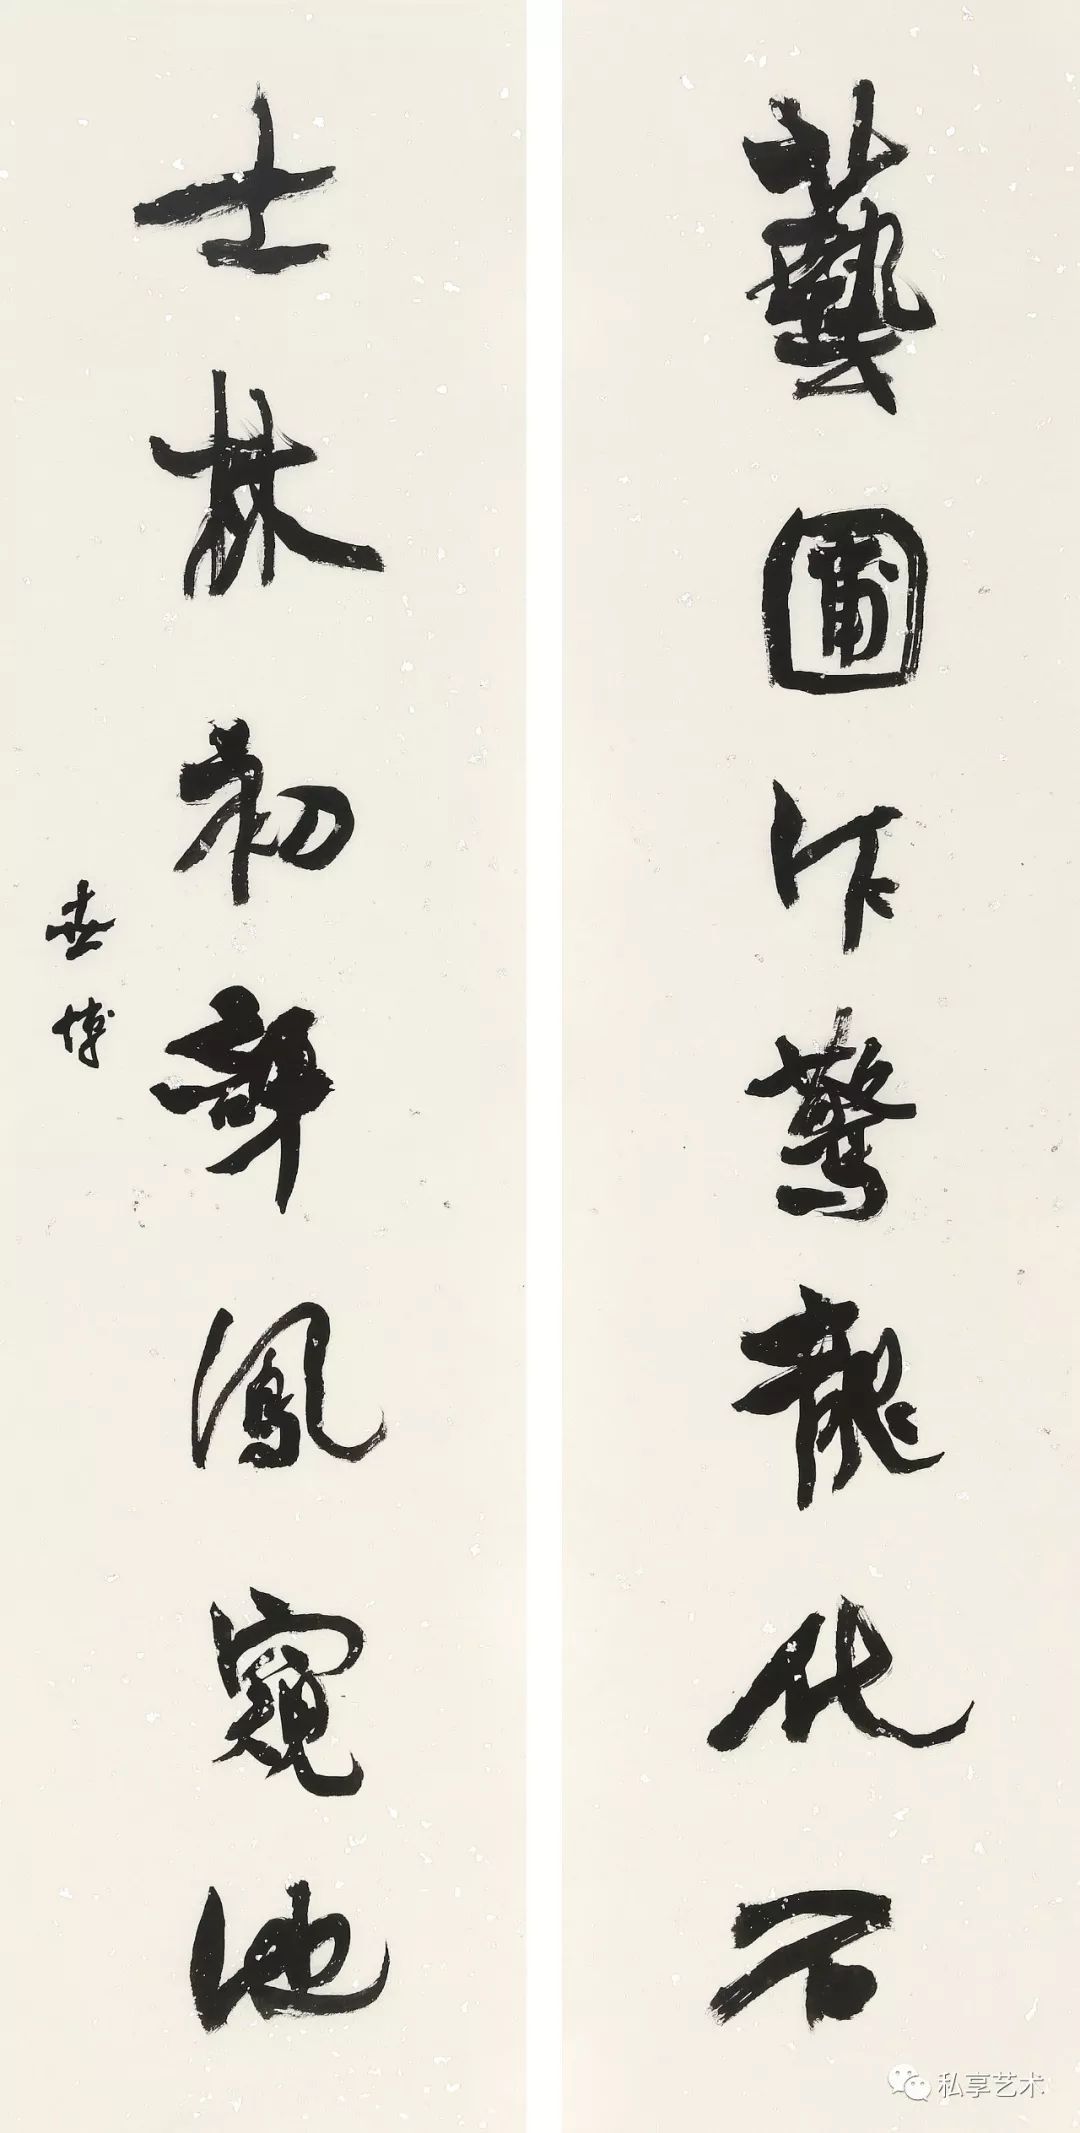 藝圃乍驚龍化石
士林初訝鳳窺池
世博
私享艺术